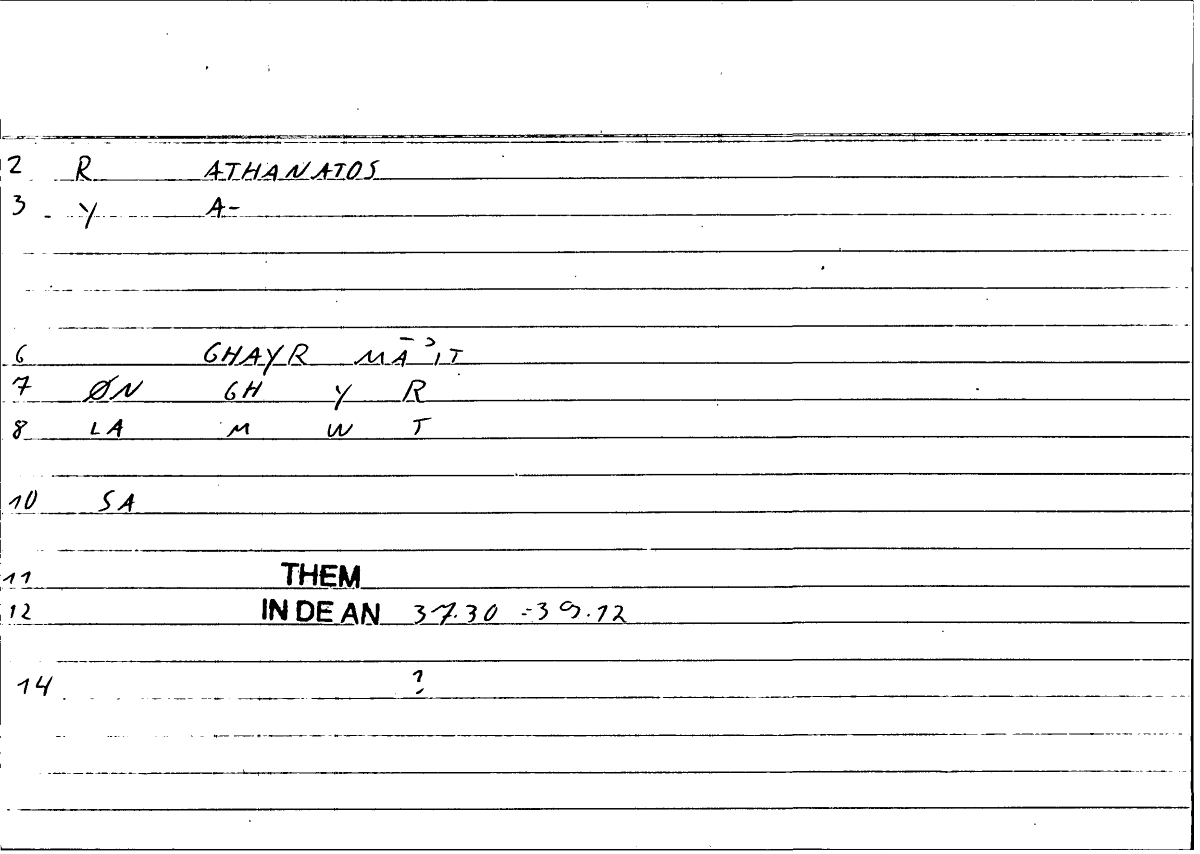 2 R ATHANATOS
3 Y A-
6 GHAYR MĀʾIT
7 ØN GH Y R
8 LA M W T
10 SA
11 THEM
12 IN DE AN 37.30 - 39.12
14 ?